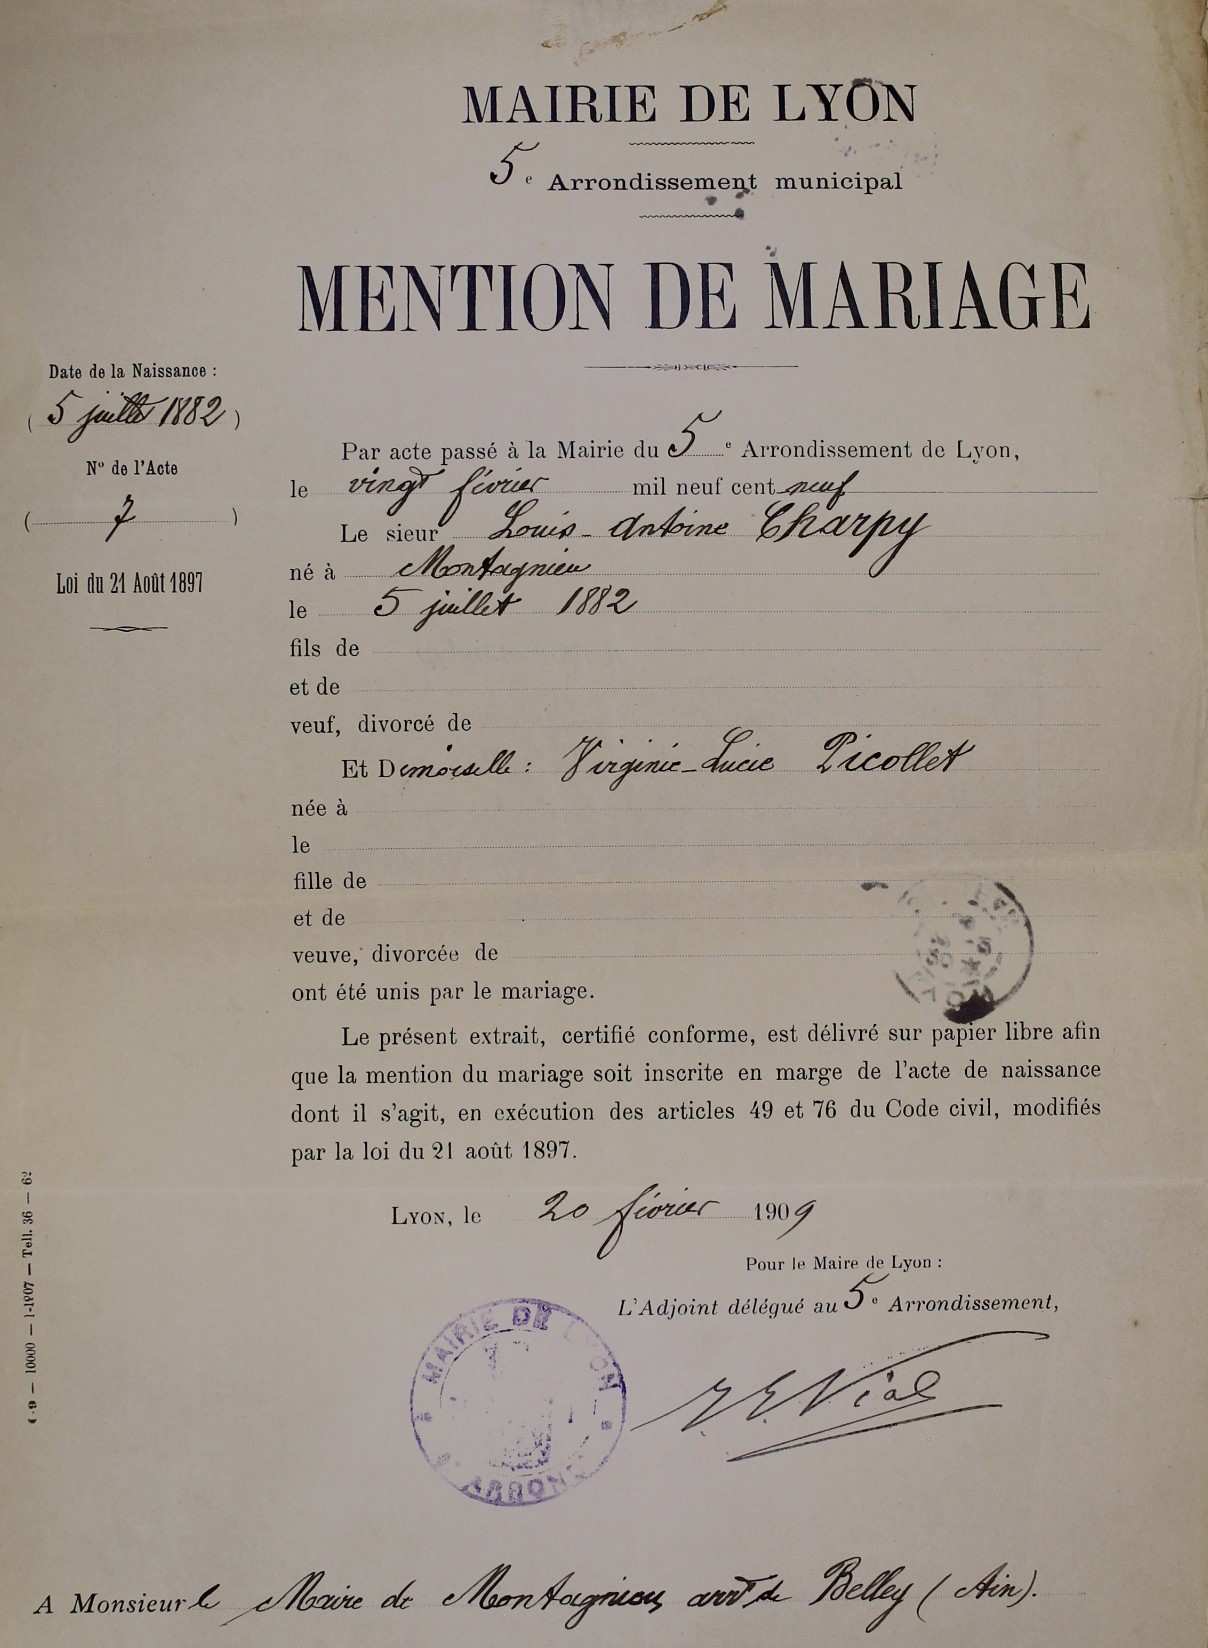 MAIRIE DE LYON
5e Arrondissement municipal
MENTION DE MARIAGE
Date de la Naissance :
( 5 juillet 1882 )
No de l'Acte
( 7 )
Loi du 21 Août 1897
Par acte passé à la Mairie du 5e Arrondissement de Lyon,
le vingt février mil neuf cent neuf
Le sieur Louis-Antoine Charpy
né à Montagnieu
le 5 juillet 1882
fils de
et de
veuf, divorcé de
Et Demoiselle : Virginie-Lucie Picollet
née à
le
fille de
et de
veuve, divorcée de
ont été unis par le mariage.
Le présent extrait, certifié conforme, est délivré sur papier libre afin
que la mention du mariage soit inscrite en marge de l'acte de naissance
dont il s'agit, en exécution des articles 49 et 76 du Code civil, modifiés
par la loi du 21 août 1897.
LYON, le 20 février 1909
Pour le Maire de Lyon :
L'Adjoint délégué au 5e Arrondissement,
Vial
MAIRIE DE LYON
A Monsieur le Maire de Montagnieu arrt de Belley (Ain).
10000 — 1-1907 — Tell. 36 — 62